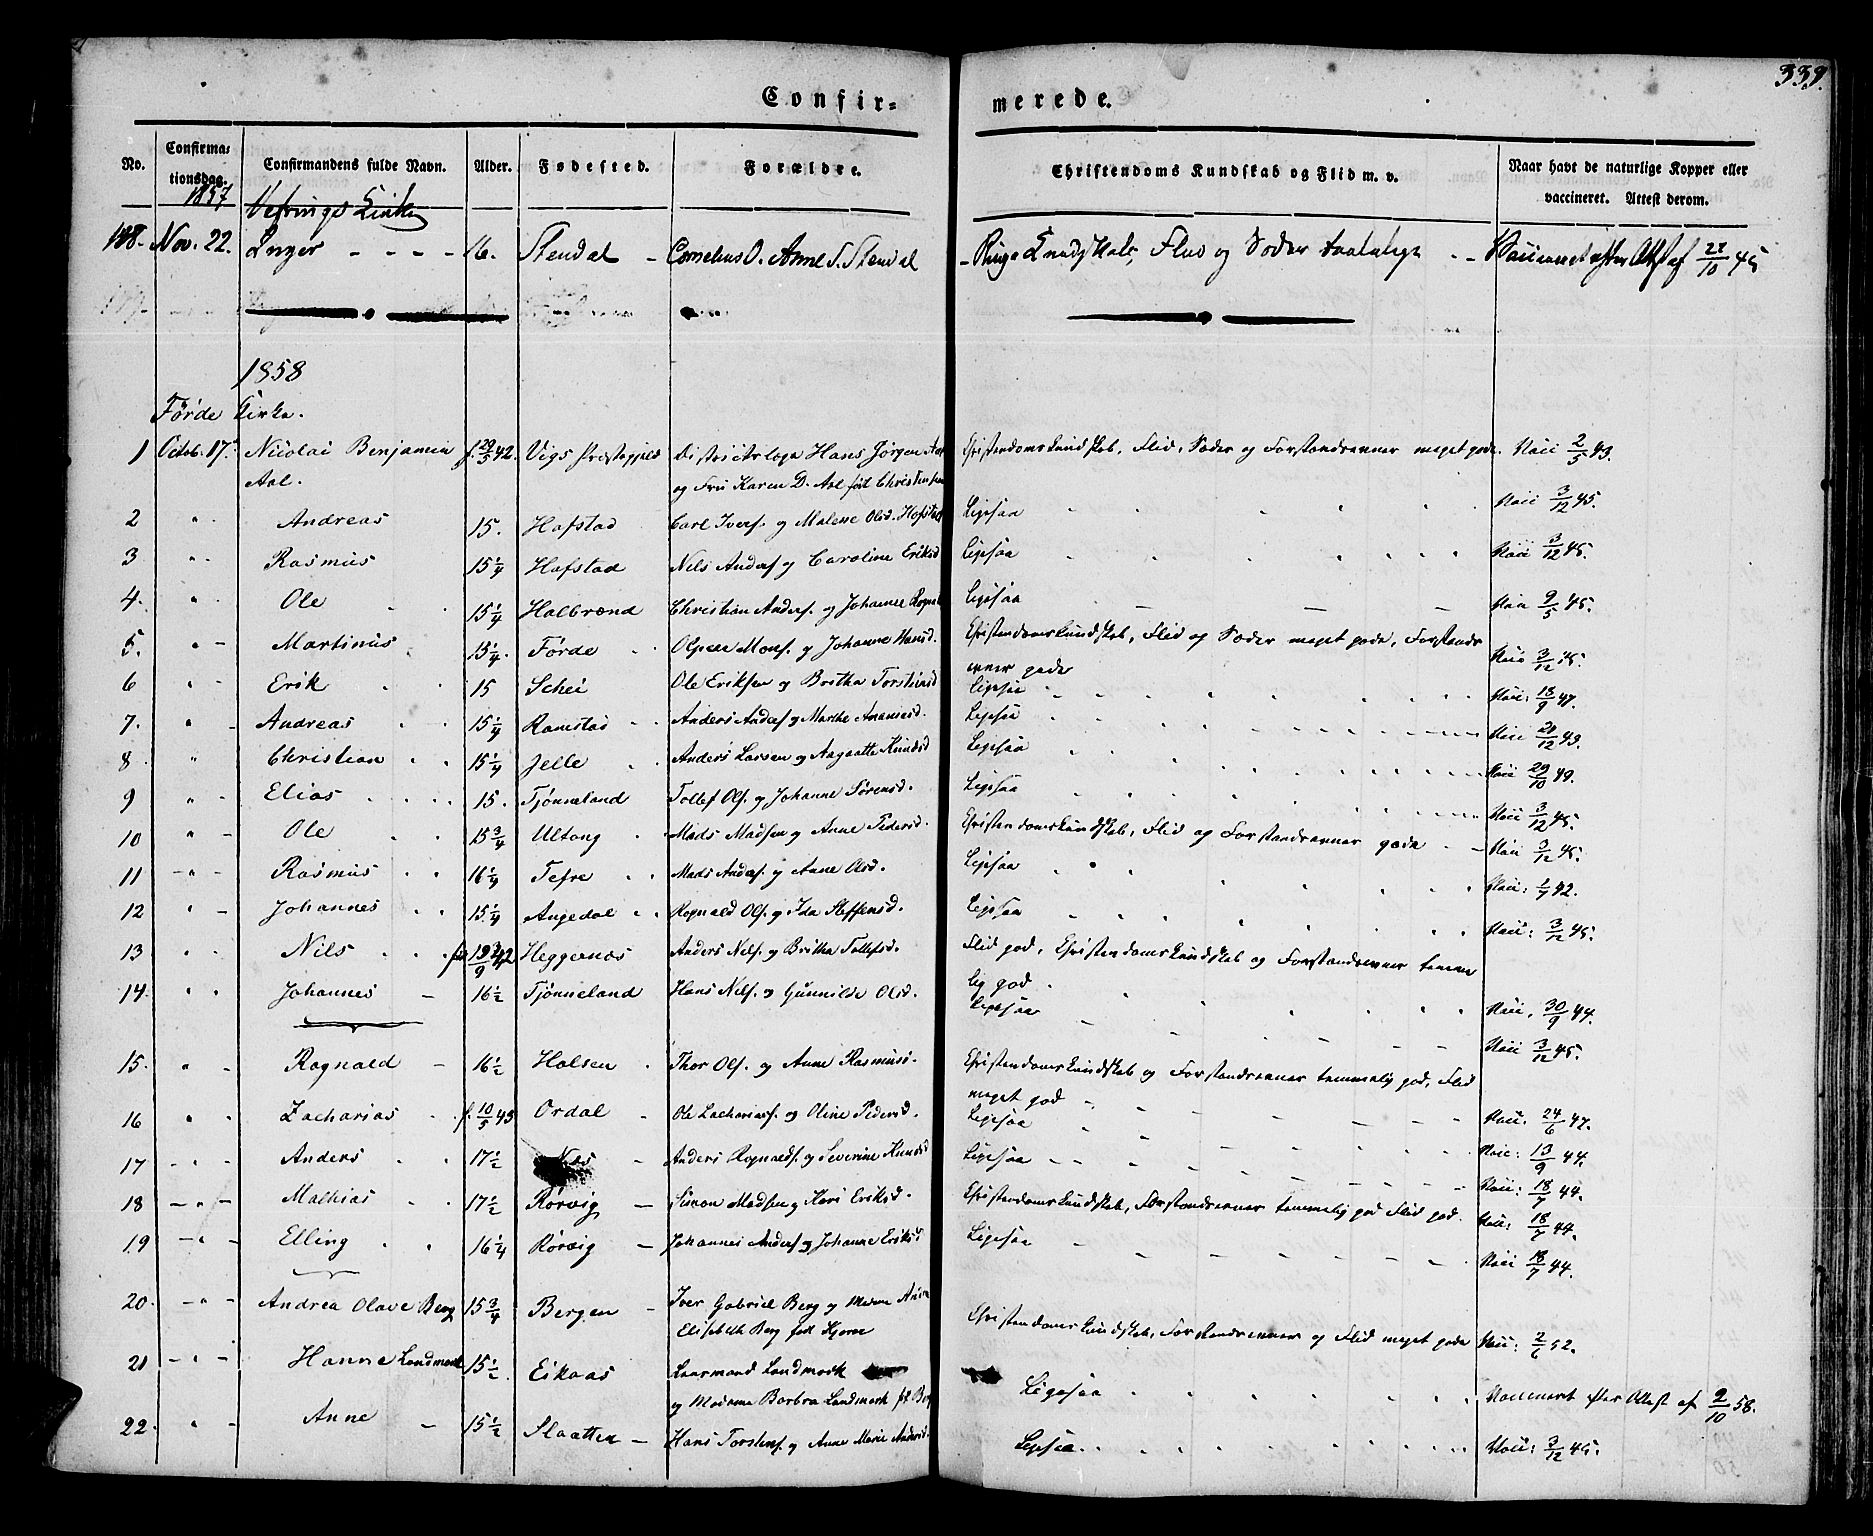 339.
Confir-
merede.
No.
Confirma-
tionsdag.
Confirmandens fulde Navn.
Alder.
Fødested.
Forældre.
Christendoms Kundskab og Flid m. v.
Naar havt de naturlige Kopper eller
vaccineret. Attest derom.
1857
Vefrings Kirke
148. Nov. 22. Inger - - - - 16. Stendal - Cornelius O. Anne S. Stendal - Ringe Kundskab, Flid og Sæder taalelige - - Vaccineret efter Att. af 22/10 45
1858
Førde Kirke.
1 Octob. 17. Nicolai Benjamin f. 29/5 42. Vigs Præstegjeld Districtslæge Hans Jørgen Aal Christendomskundskab, Flid, Sæder og Forstandsevner meget gode. Vacc 2/5 43.
Aal. og Fru Karen D. Aal født Christensen
2 " Andreas 15. Hafstad Carl Ivers. og Malene Olsd. Hafstad Ligesaa Vacc 3/12 45.
3 " Rasmus 15 1/4 Hafstad Nils Anders. og Caroline Eriksd Ligesaa Vacc 3/12 45.
4. " Ole 15 1/4 Halbrænd Christian Anders. og Johanne Ligesaa Vacc 9/5 45.
5. " Martinus 15 1/4. Førde Mons. og Johanne Hansd. Christendomskundskab, Flid og Sæder meget gode, Forstands
evner gode Vacc 3/12 45.
6 " Erik 15 Schei Ole Eriksen og Britha Torstensd Ligesaa Vacc: 13/9 47.
7. " Andreas 15 1/4 Ramstad Anders Anders. og Marthe Ananiasd. Ligesaa Vacc 20/12 43.
8 " Christian 15 1/4 Jelle Anders Larsen og Aagaatte Knudsd Ligesaa Vacc 29/10 43.
9 " Elias 15. Tjønneland Tollef Ols. og Johanne Sørensd. Ligesaa Vacc 3/12 45.
10 " Ole 15 3/4 Ultang Mads Madsen og Anne Pedersd. Christendomskundskab, Flid og Forstandsevner gode Vacc 3/12 45.
11 " Rasmus 16 1/4 Tefre Mads Anders. og Anne Olsd. Ligesaa Vacc: 1/7 42.
12 " Johannes 15 1/4 Angedal Rognald Ols. og Ida Steffensd. Ligesaa Vacc: 3/12 45.
13 " Nils Heggernæs Anders Nils. og Britha Tollefsd. Flid god, Christendomskundskab og Forstandsevner temme
lig god. Vacc. 30/9 44.
14. " Johannes 16 1/2 Tjønneland Hans Nils. og Gunnilde Olsd. Ligesaa Vacc 3/12 45.
15. " Rognald 16 1/2 Holsen Thor Ols. og Anne Rasmusd. Christendomskundskab og Forstandsevner temmelig god, Flid
meget god
16 " Zacharias f. 10/5 43 Ordal Ole Zachariass. og Oline Pedersd. Ligesaa Vacc. 24/6 47.
17 " Anders 17 1/2 Næs Anders Rognalds. og Severine Knudsd Ligesaa Vacc: 13/9 44.
18 " Mathias 17 1/2 Rørvig Simon Madsen og Kari Eriksd. Christendomskundskab, Forstandsevner temmelig god Flid god. Vacc: 18/7 44.
19 " Elling 16 1/4 Rørvig Johannes Anders. og Johanne Eriksd Ligesaa Vacc: 18/7 44.
Vacc 18/7 44.
20. " Andrea Olave Berg 15 3/4 Bergen Iver Gabriel Berg og Madame
Elisabeth Berg født Hjorne Christendomskundskab, Forstandsevner og Flid meget gode Vacc: 2/6 52.
21 " Hanne Landmark 15 1/2. Eikaas Landmark
og Madame Barbra Landmark f. Berg Ligesaa Vaccineret efter Attest af 2/10 58.
22. " Anne 15 1/2 Slaatten Hans Torstens. og Anne Marie Andersd. Ligesaa Vacc: 3/12 45.